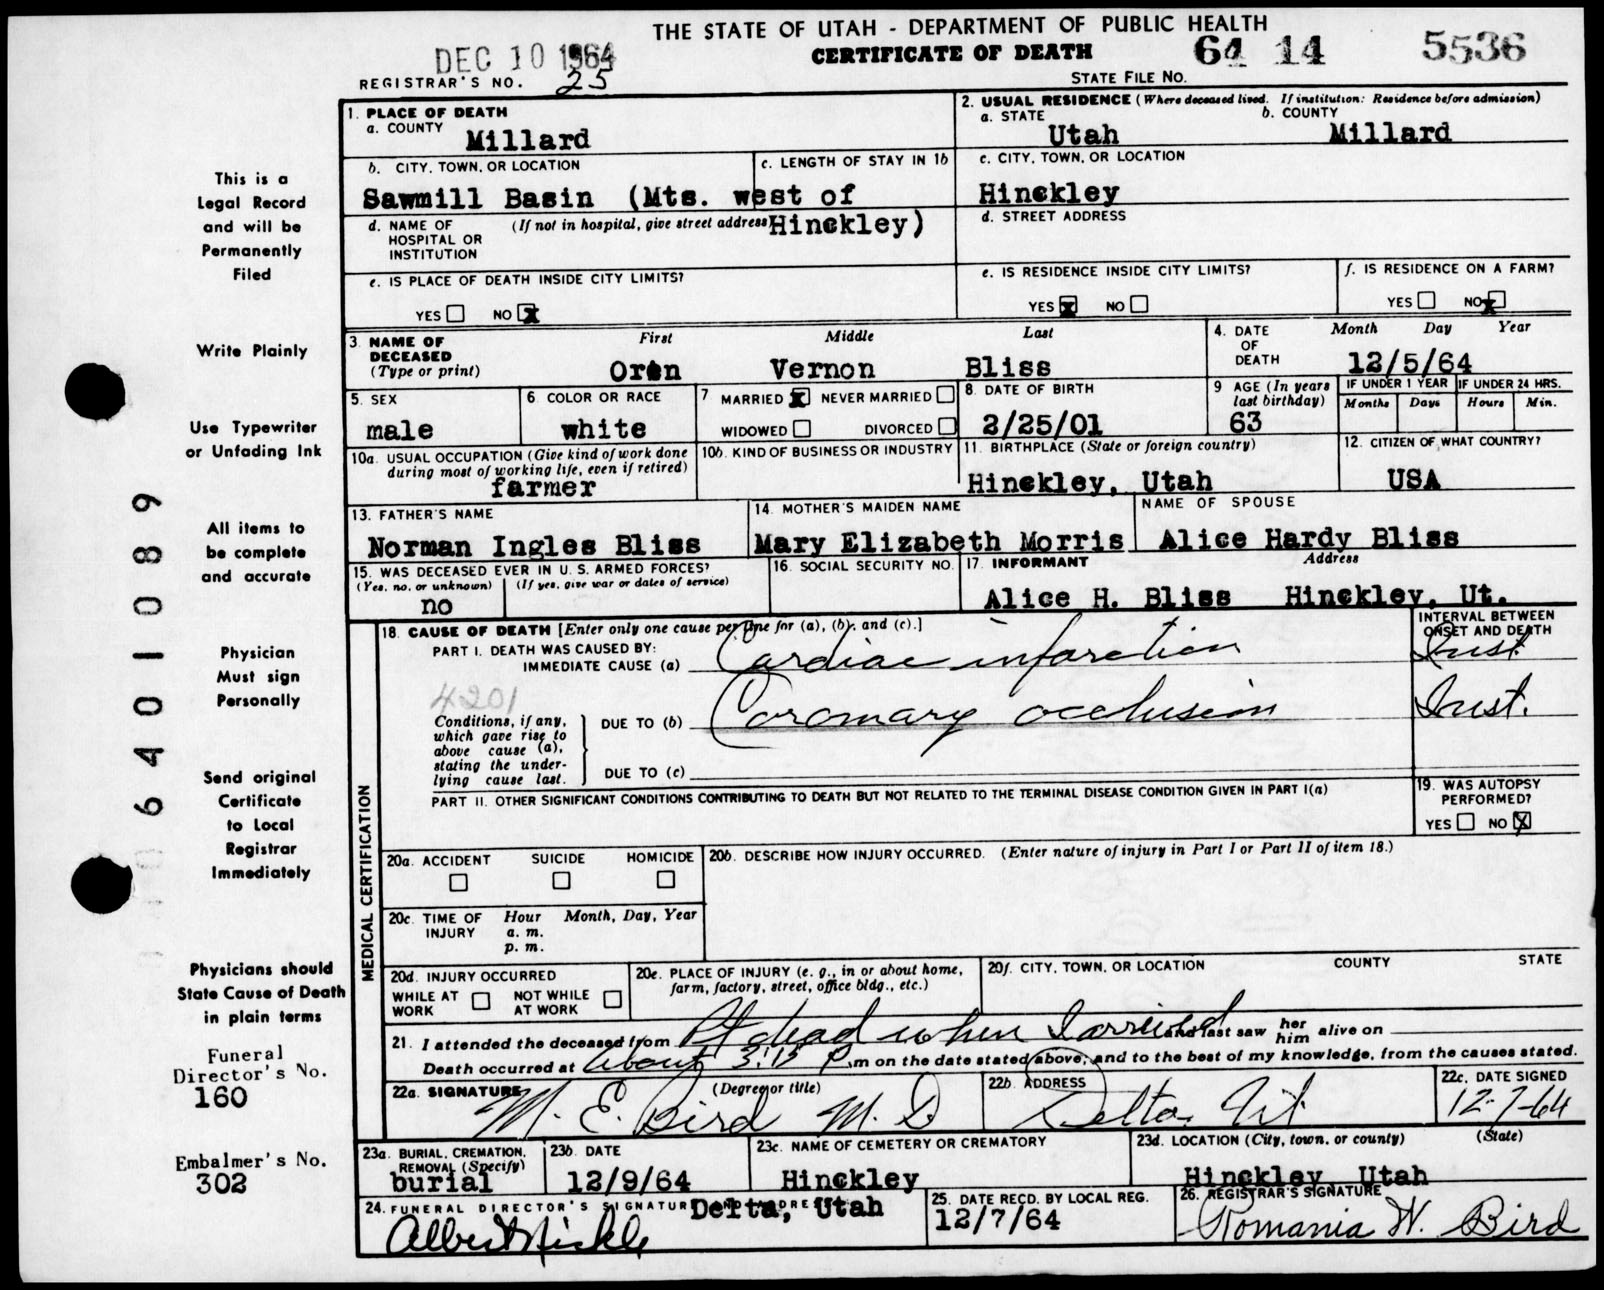 THE STATE OF UTAH - DEPARTMENT OF PUBLIC HEALTH
DEC 10 1964 CERTIFICATE OF DEATH 64 14 5536
REGISTRAR'S NO. 25 STATE FILE NO.
This is a
Legal Record
and will be
Permanently
Filed
Write Plainly
Use Typewriter
or Unfading Ink
All items to
be complete
and accurate
Physician
Must sign
Personally
Send original
Certificate
to Local
Registrar
Immediately
Physicians should
State Cause of Death
in plain terms
Funeral
Director's No.
160
Embalmer's No.
302
6401089
1. PLACE OF DEATH
a. COUNTY
Millard
2. USUAL RESIDENCE (Where deceased lived. If institution: Residence before admission)
a. STATE b. COUNTY
Utah Millard
b. CITY, TOWN, OR LOCATION c. LENGTH OF STAY IN 1b
Sawmill Basin (Mts. west of
Hinckley)
c. CITY, TOWN, OR LOCATION
Hinckley
d. NAME OF (If not in hospital, give street address)
HOSPITAL OR
INSTITUTION
d. STREET ADDRESS
e. IS PLACE OF DEATH INSIDE CITY LIMITS?
YES NO X
e. IS RESIDENCE INSIDE CITY LIMITS?
YES X NO
f. IS RESIDENCE ON A FARM?
YES NO X
3. NAME OF First Middle Last
DECEASED
(Type or print) Oren Vernon Bliss
4. DATE Month Day Year
OF
DEATH 12/5/64
5. SEX
male
6. COLOR OR RACE
white
7 MARRIED X NEVER MARRIED
WIDOWED DIVORCED
8. DATE OF BIRTH
2/25/01
9 AGE (In years
last birthday)
63
IF UNDER 1 YEAR IF UNDER 24 HRS.
Months Days Hours Min.
10a. USUAL OCCUPATION (Give kind of work done
during most of working life, even if retired)
farmer
10b. KIND OF BUSINESS OR INDUSTRY
11. BIRTHPLACE (State or foreign country)
Hinckley, Utah
12. CITIZEN OF WHAT COUNTRY?
USA
13. FATHER'S NAME
Norman Ingles Bliss
14. MOTHER'S MAIDEN NAME
Mary Elizabeth Morris
NAME OF SPOUSE
Alice Hardy Bliss
15. WAS DECEASED EVER IN U. S. ARMED FORCES?
(Yes, no, or unknown) (If yes, give war or dates of service)
no
16. SOCIAL SECURITY NO.
17. INFORMANT Address
Alice H. Bliss Hinckley, Ut.
MEDICAL CERTIFICATION
18. CAUSE OF DEATH [Enter only one cause per line for (a), (b), and (c).]
INTERVAL BETWEEN
ONSET AND DEATH
PART I. DEATH WAS CAUSED BY:
IMMEDIATE CAUSE (a) Cardiac infarction Inst.
4201
Conditions, if any,
which gave rise to
above cause (a),
stating the under-
lying cause last.
DUE TO (b) Coronary occlusion Inst.
DUE TO (c)
PART II. OTHER SIGNIFICANT CONDITIONS CONTRIBUTING TO DEATH BUT NOT RELATED TO THE TERMINAL DISEASE CONDITION GIVEN IN PART I(a)
19. WAS AUTOPSY
PERFORMED?
YES NO X
20a. ACCIDENT SUICIDE HOMICIDE
20b. DESCRIBE HOW INJURY OCCURRED. (Enter nature of injury in Part I or Part II of item 18.)
20c. TIME OF Hour Month, Day, Year
INJURY a. m.
p. m.
20d. INJURY OCCURRED
WHILE AT NOT WHILE
WORK AT WORK
20e. PLACE OF INJURY (e. g., in or about home,
farm, factory, street, office bldg., etc.)
20f. CITY, TOWN, OR LOCATION COUNTY STATE
21. I attended the deceased from Pt dead when I arrived and last saw her him alive on
Death occurred at About 3:15 P.m on the date stated above; and to the best of my knowledge, from the causes stated.
22a. SIGNATURE (Degree or title)
M. E. Bird M. D
22b. ADDRESS
Delta, Ut
22c. DATE SIGNED
12-7-64
23a. BURIAL, CREMATION,
REMOVAL (Specify)
burial
23b. DATE
12/9/64
23c. NAME OF CEMETERY OR CREMATORY
Hinckley
23d. LOCATION (City, town, or county) (State)
Hinckley Utah
24. FUNERAL DIRECTOR'S SIGNATURE Delta, Utah
Albert Nickle
25. DATE RECD. BY LOCAL REG.
12/7/64
26. REGISTRAR'S SIGNATURE
Romania W. Bird